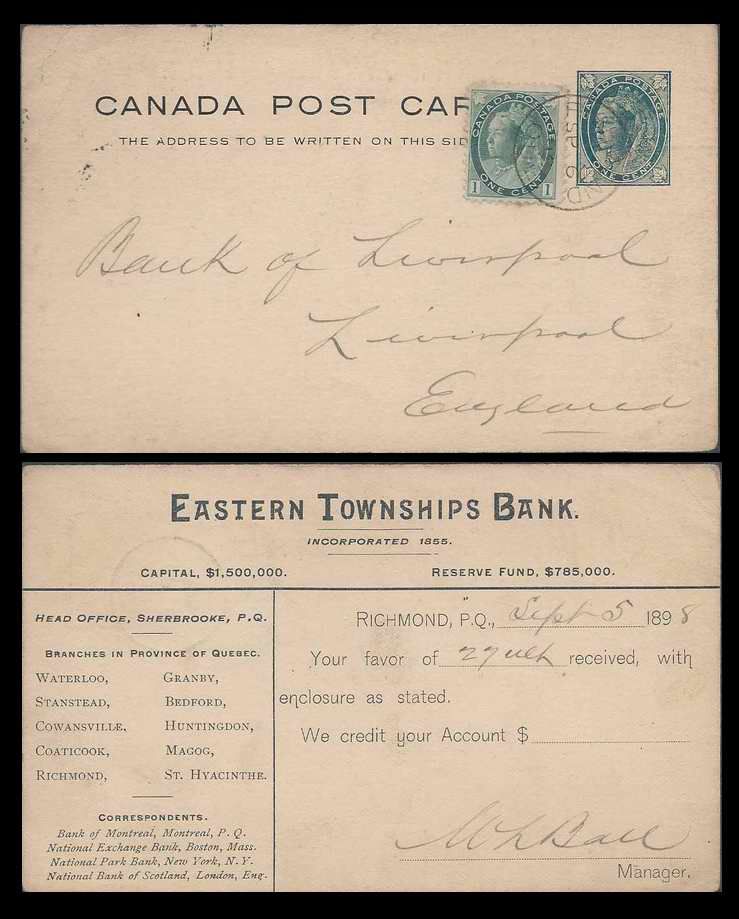 CANADA POST CAR
THE ADDRESS TO BE WRITTEN ON THIS SID
CANADA POSTAGE
1 ONE CENT 1
CANADA POSTAGE
ONE CENT
SP 6
Bank of Liverpool
Liverpool
England
EASTERN TOWNSHIPS BANK.
INCORPORATED 1855.
CAPITAL, $1,500,000. RESERVE FUND, $785,000.
HEAD OFFICE, SHERBROOKE, P.Q.
BRANCHES IN PROVINCE OF QUEBEC.
WATERLOO, GRANBY,
STANSTEAD, BEDFORD,
COWANSVILLE, HUNTINGDON,
COATICOOK, MAGOG,
RICHMOND, ST. HYACINTHE.
CORRESPONDENTS.
Bank of Montreal, Montreal, P. Q.
National Exchange Bank, Boston, Mass.
National Park Bank, New York, N. Y.
National Bank of Scotland, London, Eng.
RICHMOND, P.Q., Sept 5 1898
Your favor of 27 ult received, with
enclosure as stated.
We credit your Account $
Ball
Manager.